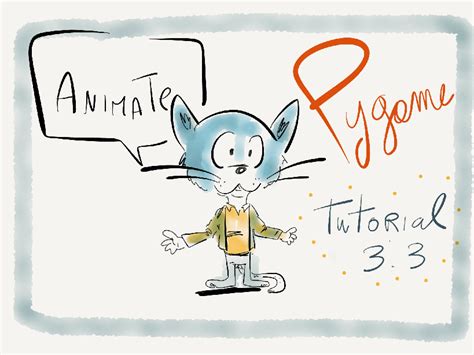 ANIMATE
Pygame
TUTORIAL
3.3